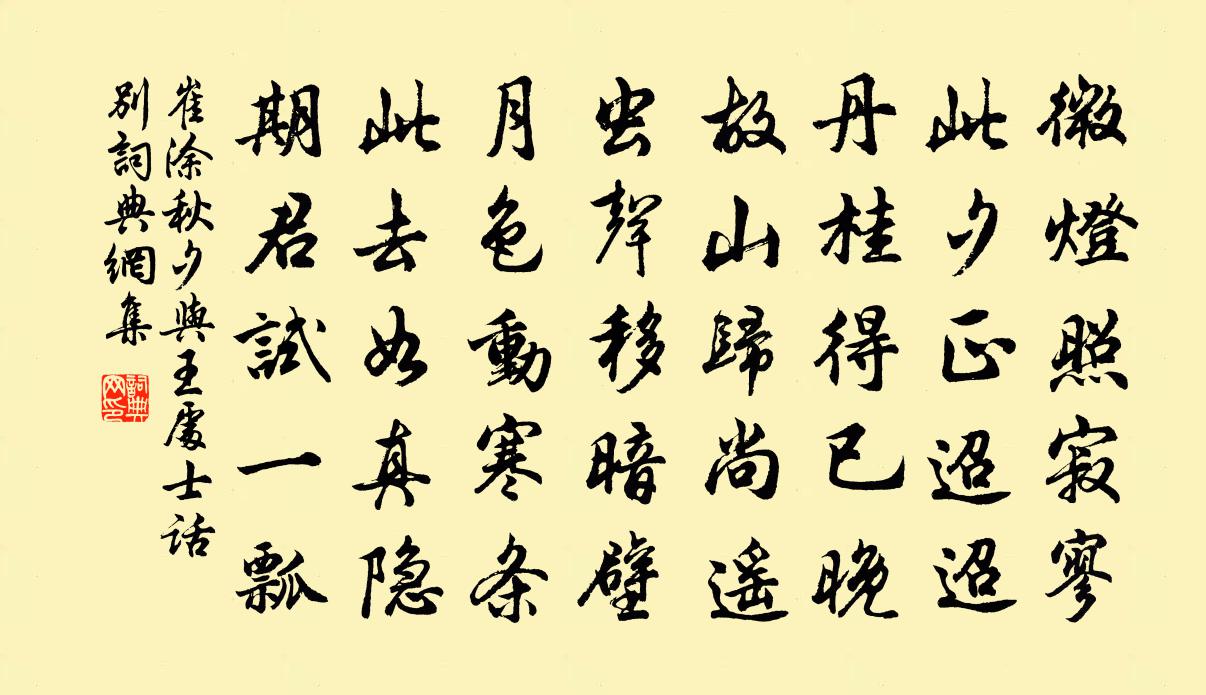 微燈照寂寥
此夕正迢迢
丹桂得已晚
故山歸尚遥
虫聲移暗壁
月色動寒条
此去如真隐
期君試一瓢
崔涂秋夕與王處士話
別詞典網集
詞典
网印